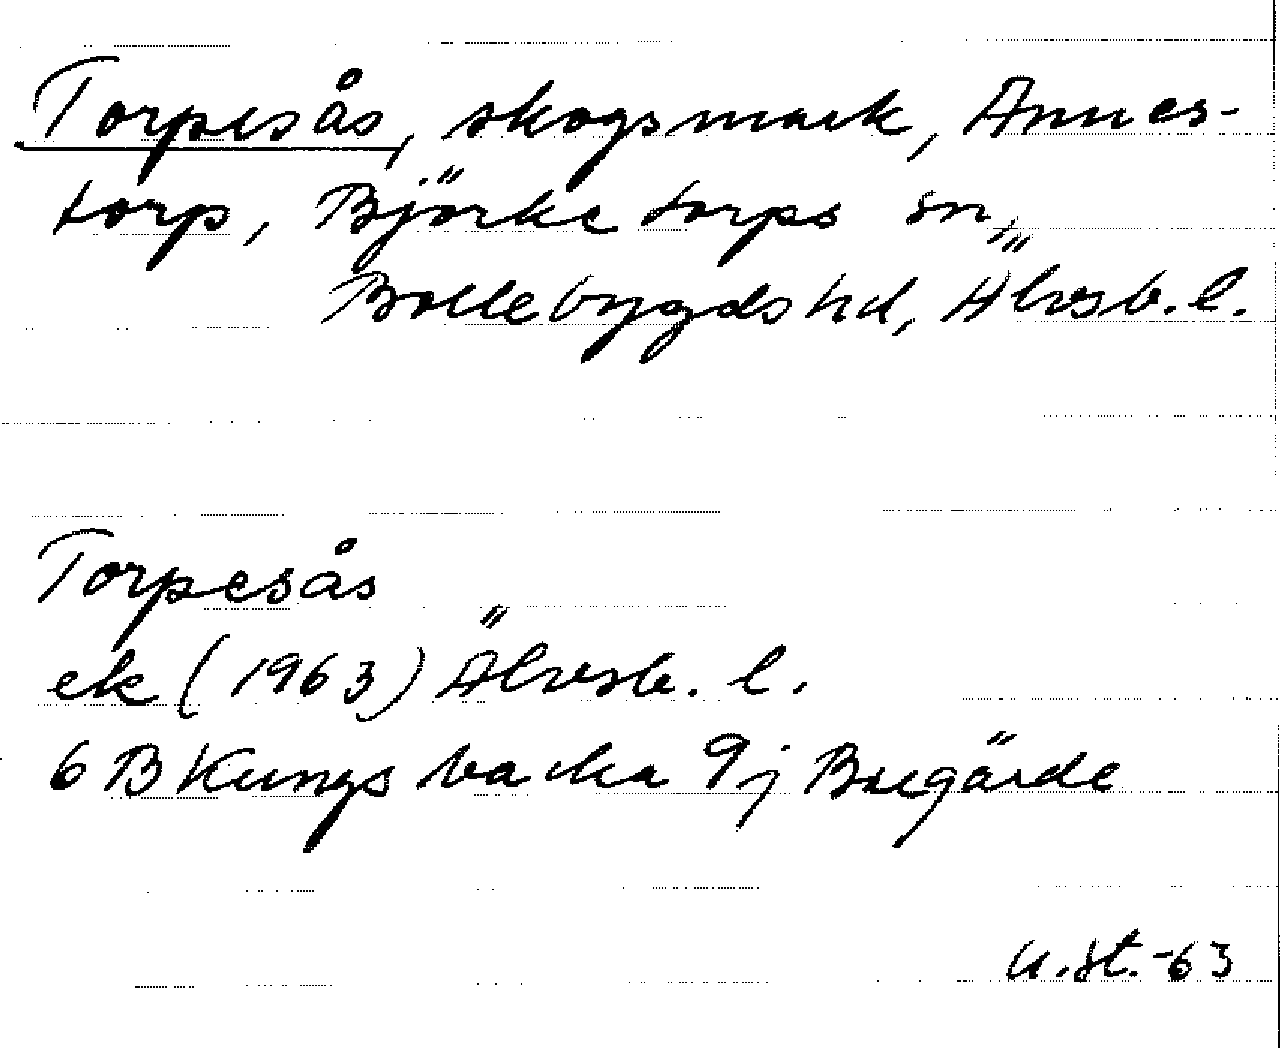 Torpesås, skogsmark, Annes-
torp, Björketorps sn,
Bollebygds hd, Älvsb. l.
Torpesås
ek (1963) Älvsb. l.
6 B Kungsbacka 9j Buegärde
U.St.-63